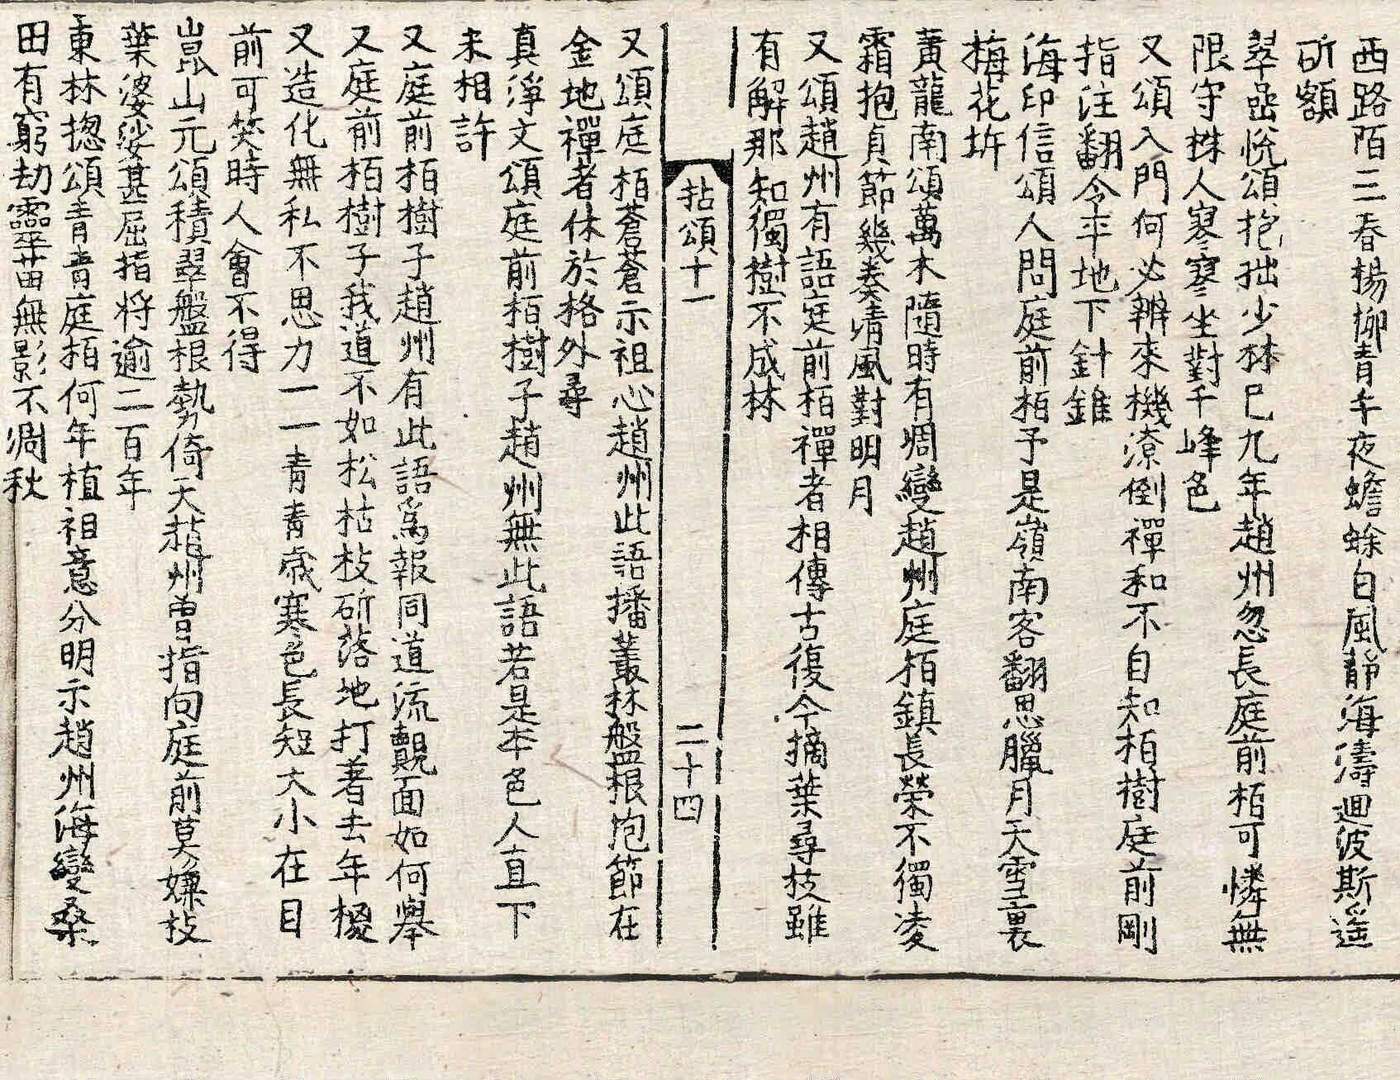 西路陌三春楊柳青千夜蟾蜍白風靜海濤迴波斯遥
斫額
翠嵒悅頌抱拙少林已九年趙州忽長庭前栢可憐無
限守株人寥寥坐對千峰色
又頌入門何必辨來機潦倒禪和不自知栢樹庭前剛
指注翻令平地下針錐
海印信頌人問庭前栢予是嶺南客翻思臘月天雪裏
梅花坼
黃龍南頌萬木隨時有凋變趙州庭栢鎮長榮不獨凌
霜抱貞節幾奏清風對明月
又頌趙州有語庭前栢禪者相傳古復今摘葉尋枝雖
有解那知獨樹不成林
拈頌十一
二十四
又頌庭栢蒼蒼示祖心趙州此語播叢林盤根抱節在
金地禪者休於格外尋
真淨文頌庭前栢樹子趙州無此語若是本色人直下
未相許
又庭前栢樹子趙州有此語爲報同道流覿面如何舉
又庭前栢樹子我道不如松枯枝斫落地打著去年椶
又造化無私不思力一一青青歲寒色長短大小在目
前可笑時人會不得
崑山元頌積翠盤根勢倚天趙州曾指向庭前莫嫌枝
葉婆娑甚屈指將逾二百年
東林揔頌青青庭栢何年植祖意分明示趙州海變桑
田有窮劫靈苗無影不凋秋